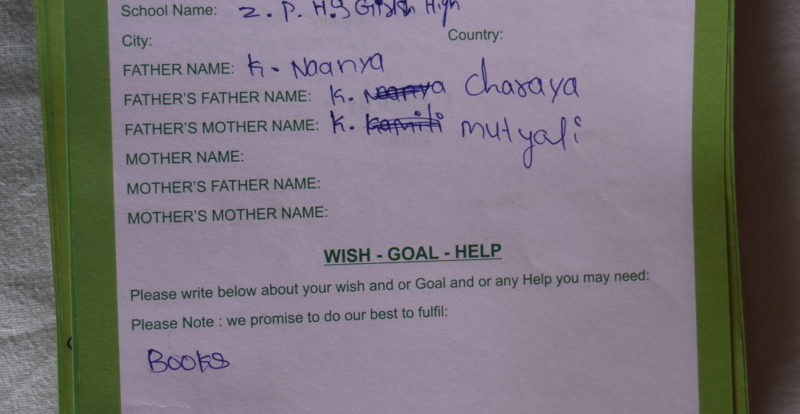 School Name: Z. P. H.S Girls High
City: Country:
FATHER NAME: K. Naanya
FATHER'S FATHER NAME: K. Charaya
FATHER'S MOTHER NAME: K. Mutyali
MOTHER NAME:
MOTHER'S FATHER NAME:
MOTHER'S MOTHER NAME:
WISH - GOAL - HELP
Please write below about your wish and or Goal and or any Help you may need:
Please Note : we promise to do our best to fulfil:
Books